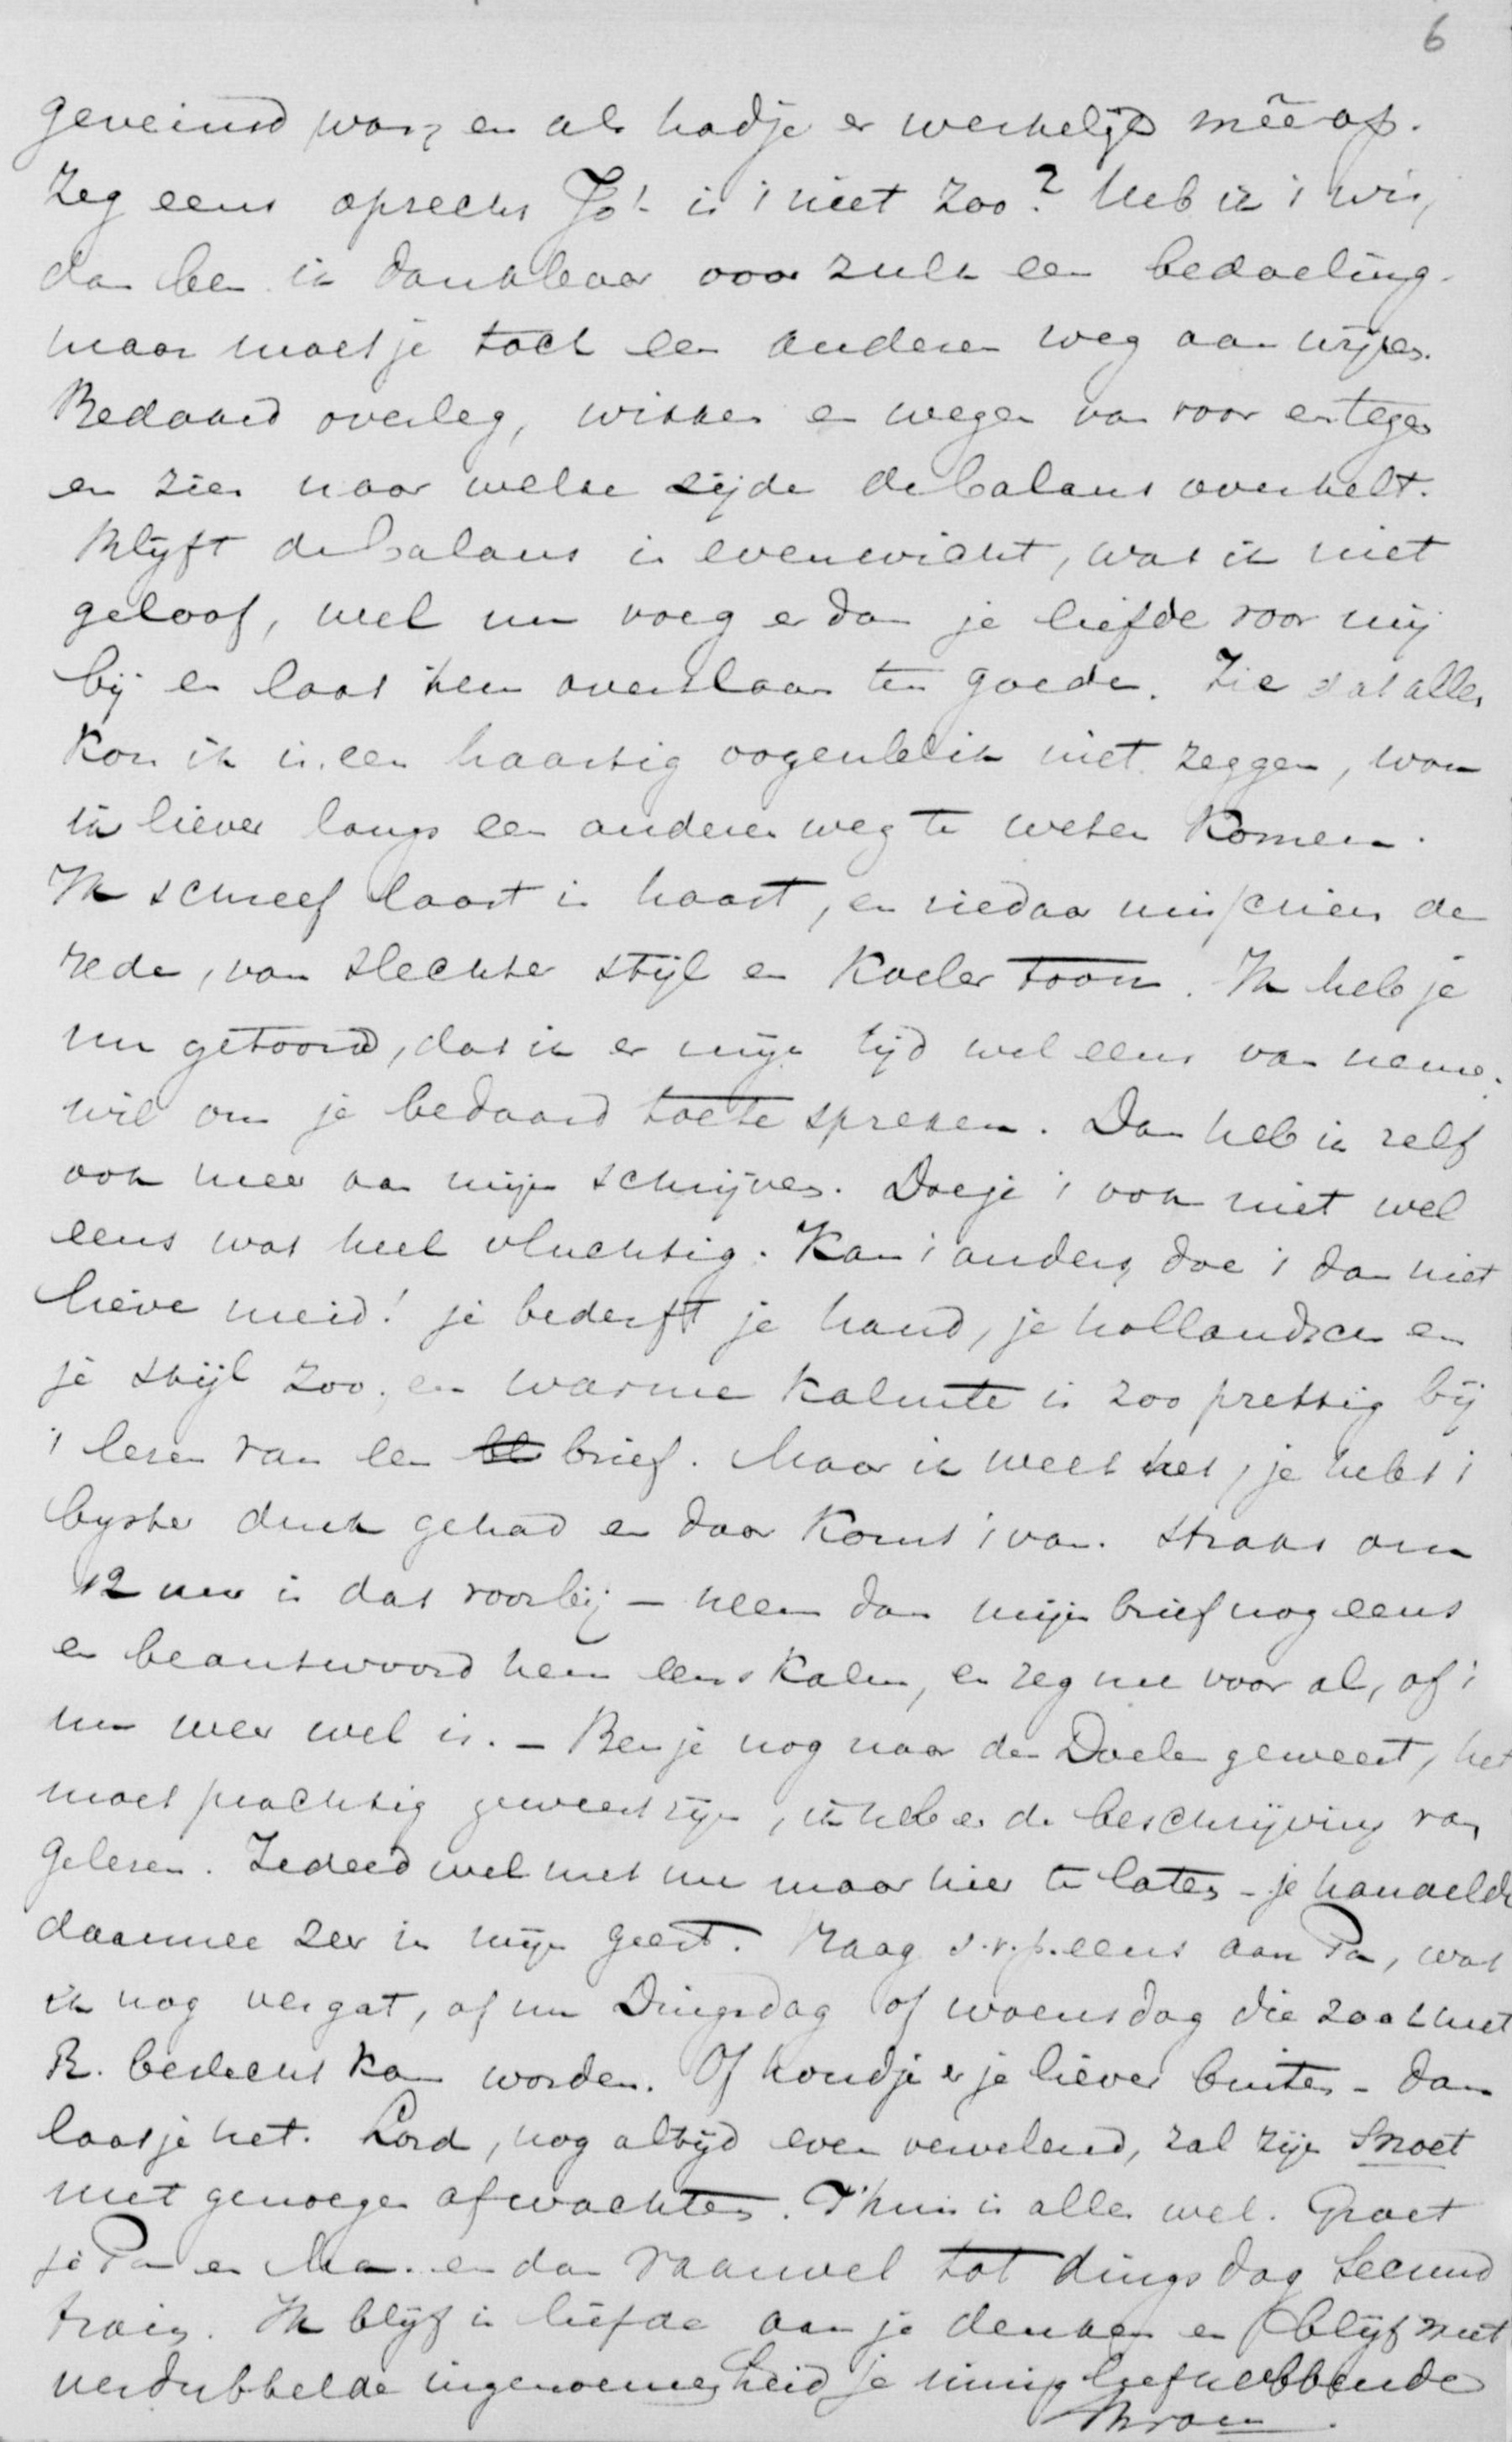 6
geveinsd was, en als hadje er werkelijk mêe op.
Zeg eens oprecht Jo! is 't niet zoo? Heb ik 't mis,
dan ben ik dankbaar voor zulk een bedoeling.
maar moet je toch een anderen weg aanwijzen.
Bedaard overleg, wikken en wegen van voor en tegen
en zien naar welke zijde de balans overhelt.
Blijft de balans in evenwicht, wat ik niet
geloof, wel nu voeg er dan je liefde voor mij
bij en laat hem overslaan ten goede. Zie dat alles
kon ik in een haastig oogenblik niet zeggen, wou
ik liever langs een anderen weg te weten komen.
Ik schreef laatst in haast, en ziedaar misschien de
rede, van slechter stijl en koeler toon. Ik heb je
nu getoond, dat ik er mijn tijd wel eens van nemen
wil om je bedaard toe te spreken. Dan heb ik zelf
ook meer aan mijn schrijven. Doe je 't ook niet wel
eens wat heel vluchtig. Kan 't anders, doe 't dan niet
lieve meid! je bederft je hand, je hollandsch en
je stijl zoo, en warme kalmte is zoo prettig bij
't lezen van een brief. Maar ik weet het, je hebt 't
byster druk gehad en daar komt 't van. Straks om
12 uur is dat voorbij – neem dan mijn brief nog eens
en beantwoord hem eens kalm, en zeg me vooral, of 't
nu weer wel is. – Ben je nog naar den Doelen geweest, het
moet prachtig geweest zijn, ik heb er de beschrijving van
gelezen. Je deed wel met me maar hier te laten – je handelde
daarmee zeer in mijn geest. Vraag s.v.p. eens aan Pa, wat
ik nog vergat, of nu Dingsdag of woensdag die zaak met
R. beslecht kan worden. Of houdje er je liever buiten – dan
laat je het. Lord, nog altijd even vervelend, zal zijn Snoet
met genoegen afwachten. T'huis is alles wel. Groet
je Pa en Ma. en dan vaarwel tot dingsdag
trein. Ik blijf in liefde aan je denken en blijf met
verdubbelde ingenomenheid je innig liefhebbende
Bram.